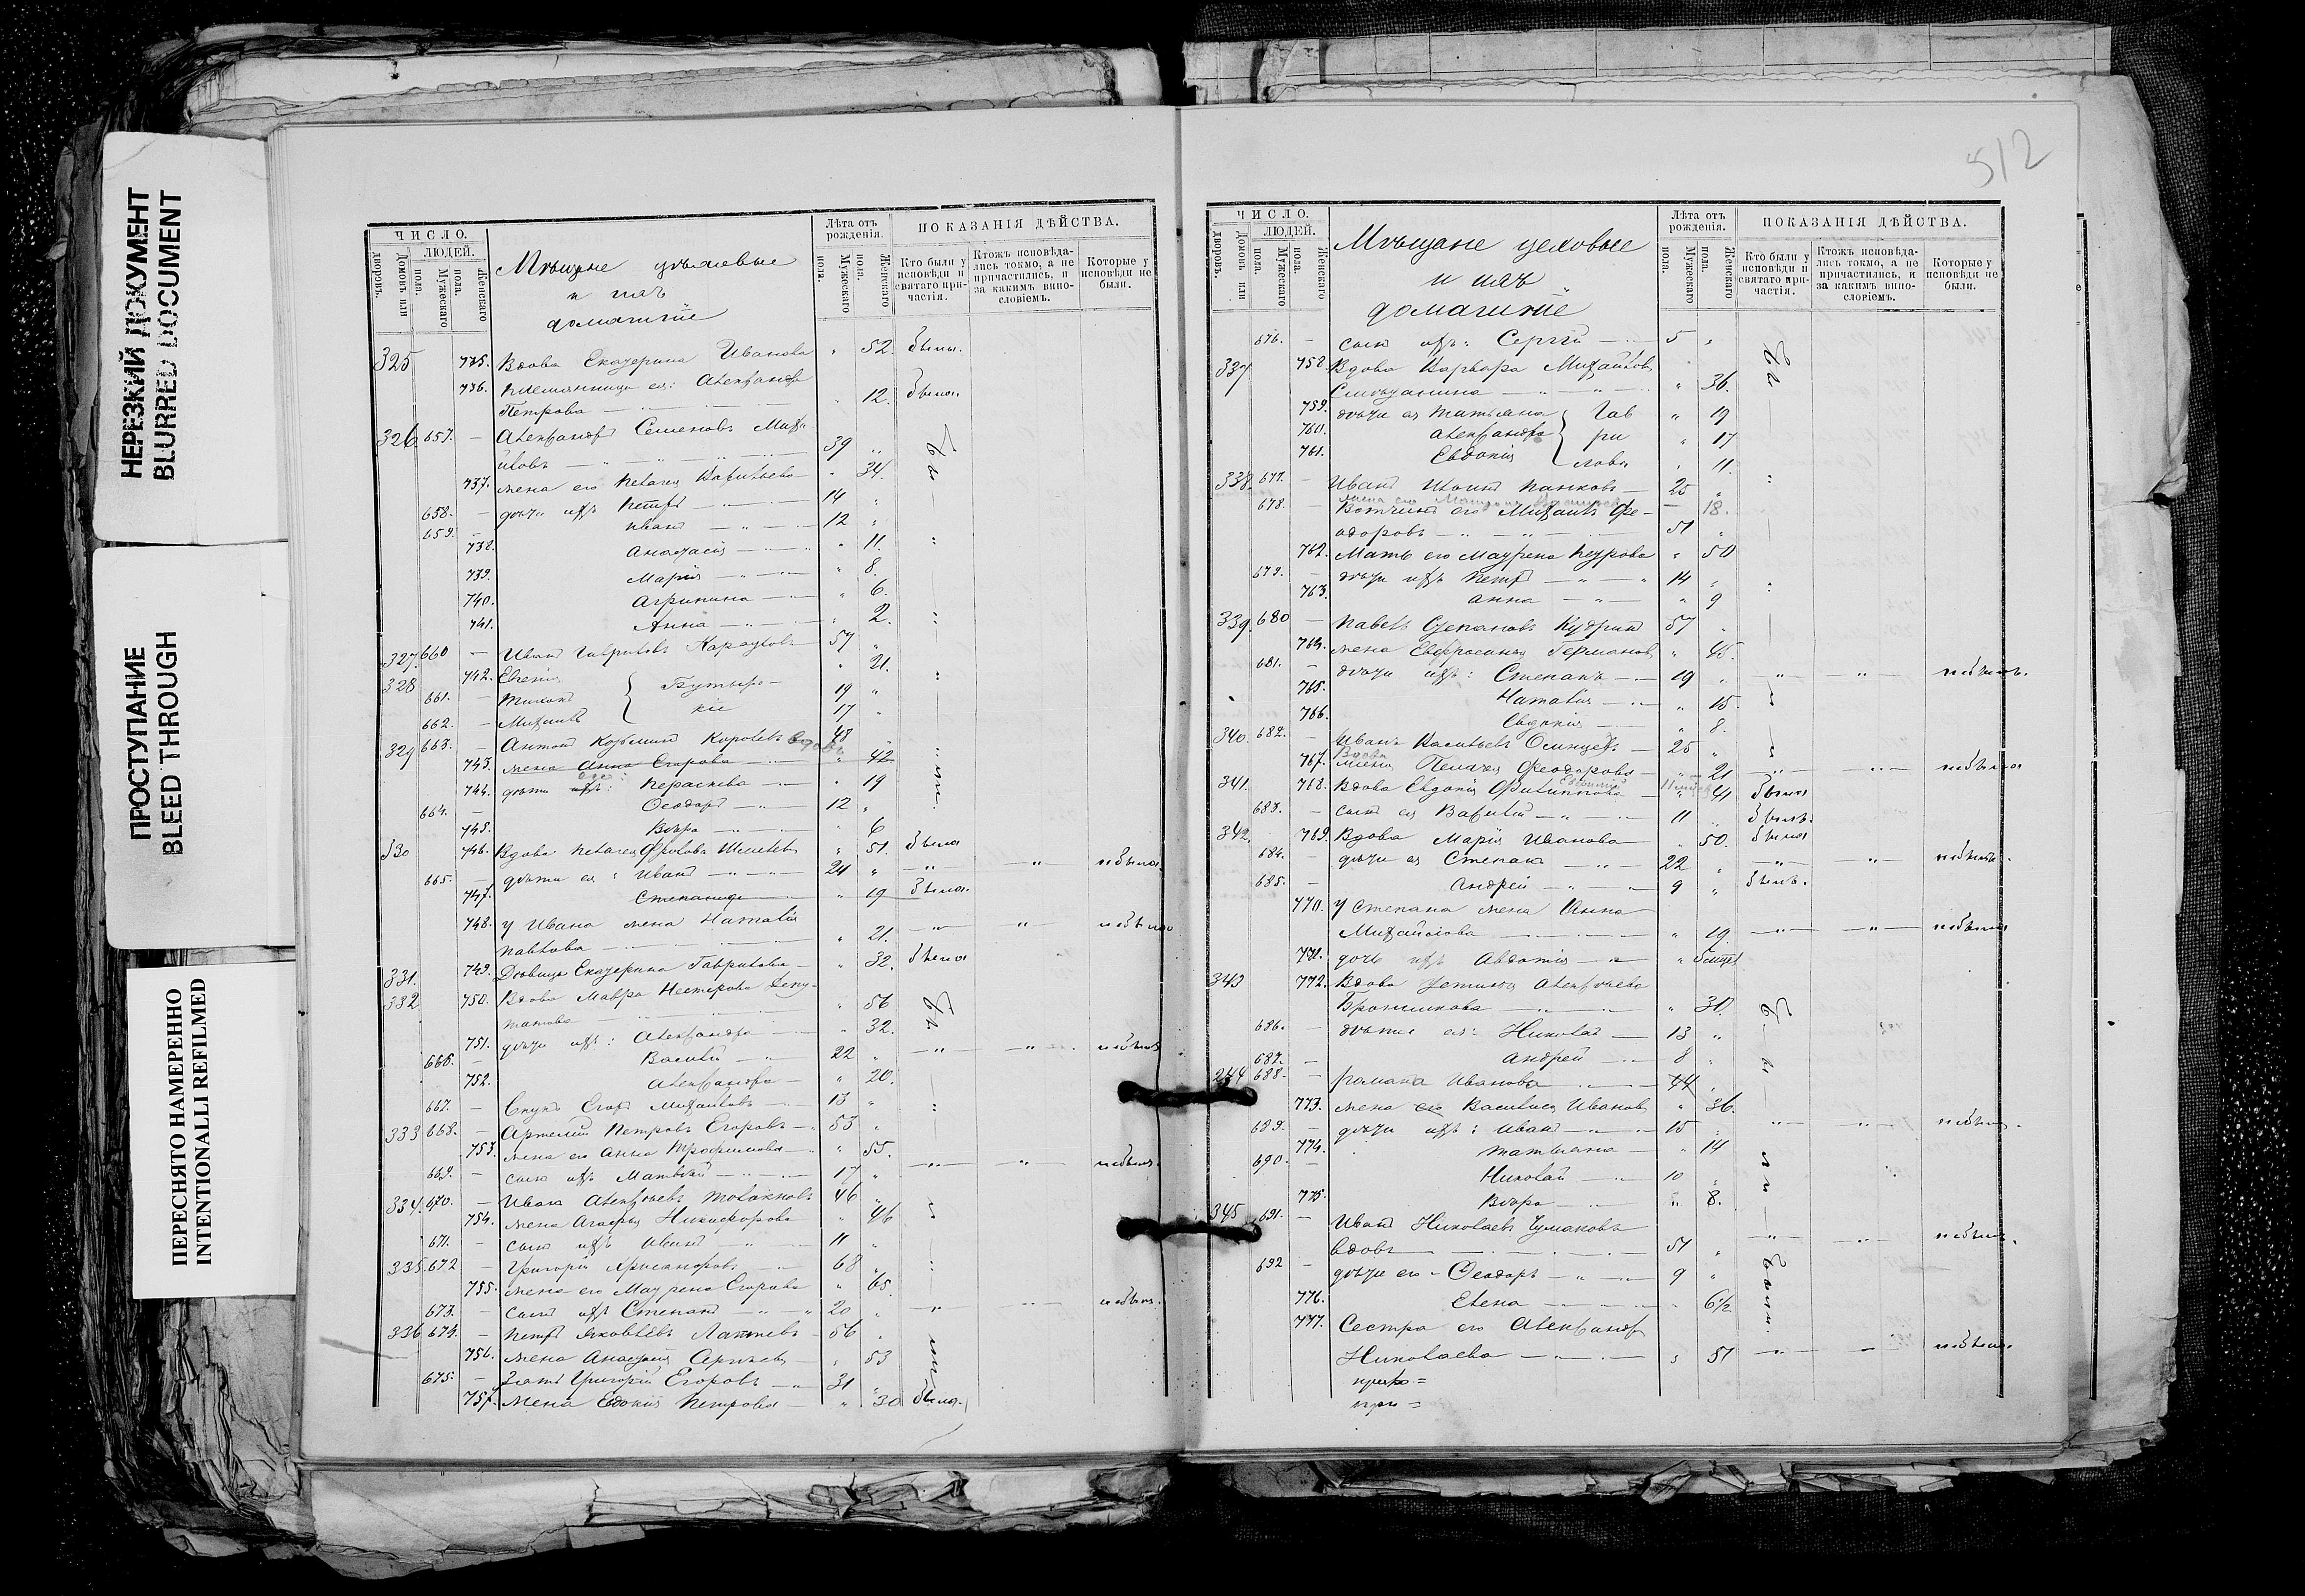 НЕРЕЗКИЙ ДОКУМЕНТ
BLURRED DOCUMENT
ПРОСТУПАНИЕ
BLEED THROUGH
ПЕРЕСНЯТО НАМЕРЕННО
INTENTIONALLI REFILMED
ЧИСЛО.
Домовъ или дворовъ.
ЛЮДЕЙ.
Мужескаго пола.
Женскаго пола.
Мѣщане цѣховые
и ихъ
домашніе
Лѣта отъ рожденія.
Мужескаго пола.
Женскаго пола.
ПОКАЗАНІЯ ДѢЙСТВА.
Кто были у исповѣди и святаго причастія.
Ктожъ исповѣдались токмо, а не причастились, и за какимъ винословіемъ.
Которые у исповѣди не были.
325 735. Вдова Екатерина Иванова " 52. была.
736. племянница ея: Александра
Петрова " 12. была.
326. 657. Александръ Семеновъ Михай-
ловъ 39 "
737. жена его Пелагея Васильева " 34.
658. дѣти ихъ Петръ 14 "
659. Иванъ 12 "
738. Анастасія " 11.
739. Марія " 8.
740. Агрипина " 6.
741. Анна " 2.
327. 660 Иванъ Гавриловъ 57 "
328 742. Евгенія " 21.
Бутыр-
кіе
661. 19 "
662. Михаилъ 17 "
329 663. Антонъ Козьминъ Королевъ вдовъ 48
743. жена Анна Егорова " 42
744. дѣти ихъ: его Параскева " 19
664. Ѳеодоръ 12 "
745. Вѣра " 6
330 746. Вдова Пелагея Фролова " 51. была
665. дѣти ея: Иванъ 24 " небылъ
747. Степанида " 19 была.
748. у Ивана жена Наталія
Павлова " 21. небыла
331. 749. Дѣвица Екатерина Гаврилова " 32. была
332 750. Вдова Мавра Нестерова Депу-
татова " 56
751. дѣти ихъ: Александра " 32.
666. Василій 22 " небылъ
752. Александра " 20.
667. Внукъ Егоръ Михайловъ 13 "
333 668. Артемій Петровъ Егоровъ 53 "
753. жена его Анна Трофимова " 55.
669. сынъ ихъ Матвѣй 17 " небылъ.
334. 670. Иванъ Алексѣевъ 46 "
754. жена Агафья Никифорова " 46
671. сынъ ихъ Иванъ 11 "
335. 672 Григорій 68 "
755. жена его Матрена Егорова " 65.
673. сынъ ихъ Степанъ 20 " небылъ.
336 674. Петръ Яковлевъ Лаптевъ 56 "
756. жена Анастасія " 53
675. Зять Григорій Егоровъ 31 "
757. Жена Евдокія Петрова " 30 была.
512
ЧИСЛО.
Домовъ или дворовъ.
ЛЮДЕЙ.
Мужескаго пола.
Женскаго пола.
Мѣщане цеховые
и ихъ
домашніе
Лѣта отъ рожденія.
Мужескаго пола.
Женскаго пола.
ПОКАЗАНІЯ ДѢЙСТВА.
Кто были у исповѣди и святаго причастія.
Ктожъ исповѣдались токмо, а не причастились, и за какимъ винословіемъ.
Которые у исповѣди не были.
676. сынъ ихъ: Сергій 5 "
337 758. Вдова Варвара Михайлова
" 36.
759. дѣти ея Татьяна Гав " 19
760. Александра ри " 17
761. Евдокія лова " 11.
338. 677. Иванъ 25 "
жена его 18.
678. Вотчимъ его Михаилъ Ѳе-
одоровъ 51 "
762. Мать его Матрена Петрова " 50
679. дѣти ихъ Петръ 14 "
763. Анна " 9
339. 680 Павелъ Степановъ Кудринъ 57 "
764. жена Евфросинія Германова " 45.
681. дѣти ихъ: Степанъ 19 " небылъ.
765. Наталія " 15.
766. Евдокія " 8.
340. 682. Иванъ Васильевъ Осинцевъ 25 "
767. Вдова жена Пелагея Ѳеодорова " 21 небыла
341. 768. Вдова Евдокія Филиппова " 41 была
683. сынъ ея Василій 11 " былъ.
342. 769. Вдова Марія Иванова " 50. была
684. дѣти ея Степанъ 22 " небылъ.
685. Андрей 9 " былъ.
770. у Степана жена Анна
Михайлова " 19. небыла
771. дочь ихъ Авдотія "
343 772. Вдова Устинія Алексѣева
Бронникова " 30.
686. дѣти ея: Николай 13 "
687. Андрей 8 "
244 688. Романъ Ивановъ 44 "
773. жена его Василиса Иванова " 36.
689. дѣти ихъ: Иванъ 15 небылъ.
774. Татьяна " 14
690. Николай 10 "
775. Вѣра " 8.
345 691. Иванъ Николаевъ Чумаковъ
вдовъ 51 " небылъ.
692 дѣти его Ѳеодоръ 9 "
776. Елена " 6½
777. Сестра его Александра
Николаева " 51 небыла.